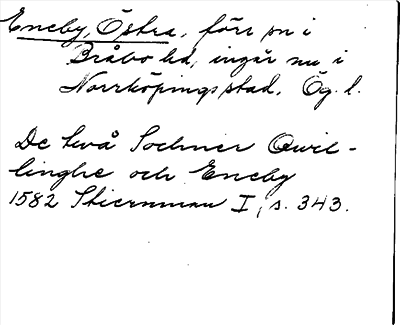 Eneby, Östra, förr sn i
Bråbo hd, ingår nu i
Norrköpings stad. Ög. l.
De två Sochner Qwil-
linghe och Eneby
1582 Stiernman I, s. 343.